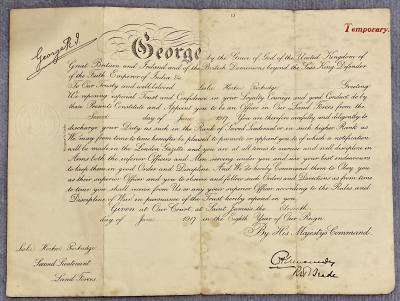 13
Temporary.
George R.I.
George by the Grace of God of the United Kingdom of
Great Britain and Ireland and of the British Dominions beyond the Seas King Defender
of the Faith Emperor of India &c.
To Our Trusty and well beloved Leslie Greeting
We reposing especial Trust and Confidence in your Loyalty Courage and good Conduct do by
these Presents Constitute and Appoint you to be an Officer in Our Land Forces from the
day of June 1917 You are therefore carefully and diligently to
discharge your Duty as such in the Rank of Second Lieutenant or in such higher Rank as
We may from time to time hereafter be pleased to promote or appoint you to of which a notification
will be made in the London Gazette and you are at all times to exercise and well discipline in
Arms both the inferior Officers and Men serving under you and use your best endeavours
to keep them in good Order and Discipline And We do hereby Command them to Obey you
as their superior Officer and you to observe and follow such Orders and Directions as from time
to time you shall receive from Us or any your superior Officer according to the Rules and
Discipline of War in pursuance of the Trust hereby reposed in you
Given at Our Court at Saint James's the
day of June 1917 in the Eighth Year of Our Reign
By His Majesty's Command
Leslie
Second Lieutenant
Land Forces